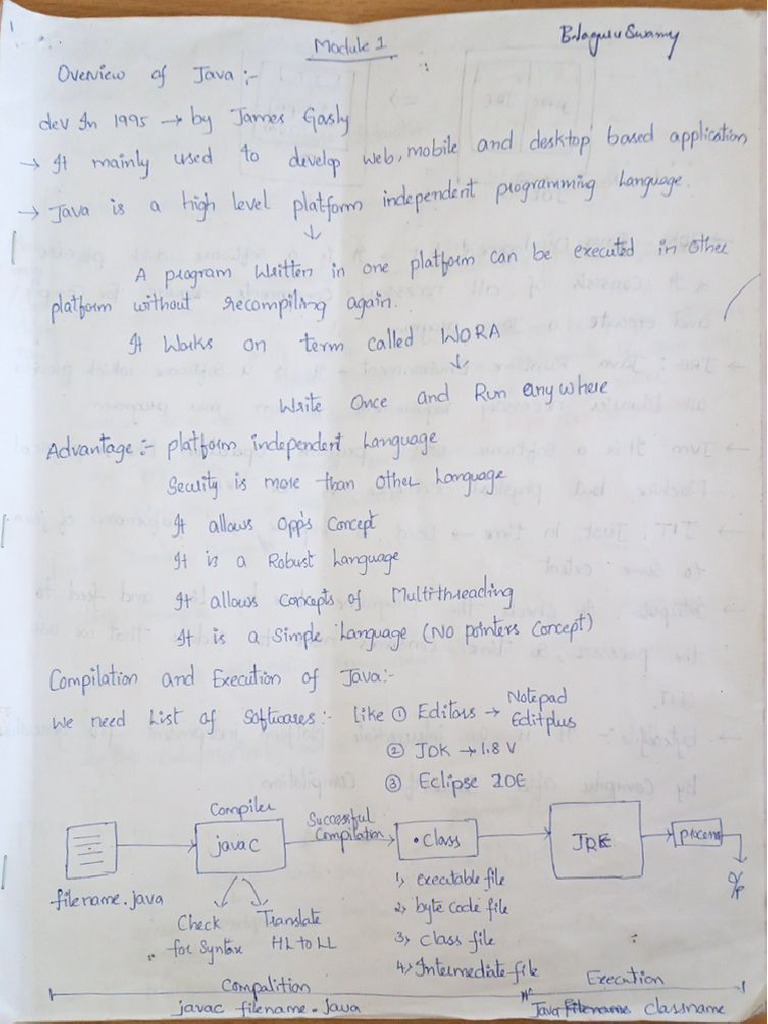 Module 1
Balaguru Swamy
Overview of Java :-
dev In 1995 → by James Gosly
→ It mainly used to develop web, mobile and desktop based application
→ Java is a high level platform independent programming Language.
↓
A program written in one platform can be executed in other
platform without recompiling again.
It Works on term called WORA
↓
Write Once and Run anywhere
Advantage :- platform independent Language
Security is more than other Language
It allows Opp's Concept
It is a Robust Language
It allows concepts of Multithreading
It is a Simple Language (No pointers Concept)
Compilation and Execution of Java:-
We need List of Softwares:- Like ① Editors → Notepad
Editplus
② JDK → 1.8 V
③ Eclipse IDE
Compiler
javac
Successful
Compilation
.Class
JRE
process
O/P
filename.java
Check
for Syntax
Translate
HL to LL
1) executable file
2) byte code file
3) Class file
4) Intermediate file
Compalition
Execution
javac filename.java
Java classname